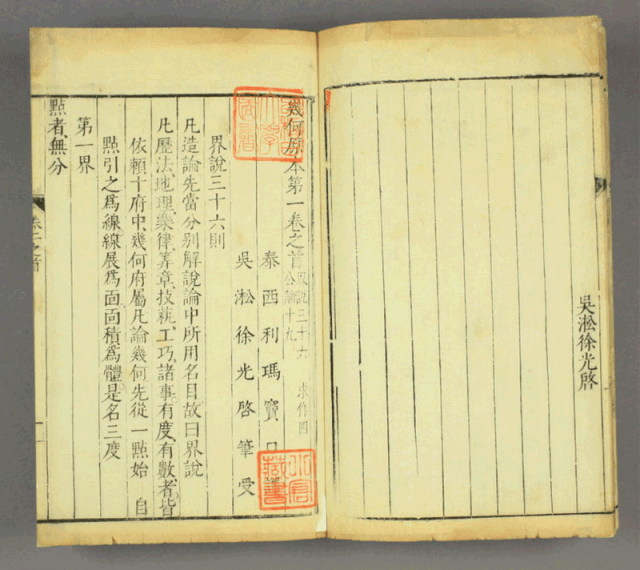 吳淞徐光啓
幾何原本第一卷之首 界說三十六 求作四
公論十九
泰西利瑪竇口譯
吳淞徐光啓筆受
界說三十六則
凡造論先當分別解說論中所用名目故曰界說
凡歷法、地理、樂律、筭章、技藝、工巧、諸事有度、有數者、皆
依賴十府中、幾何府屬凡論幾何先從一點始 自
點引之爲線線展爲面面積爲體是名三度
第一界
點者、無分